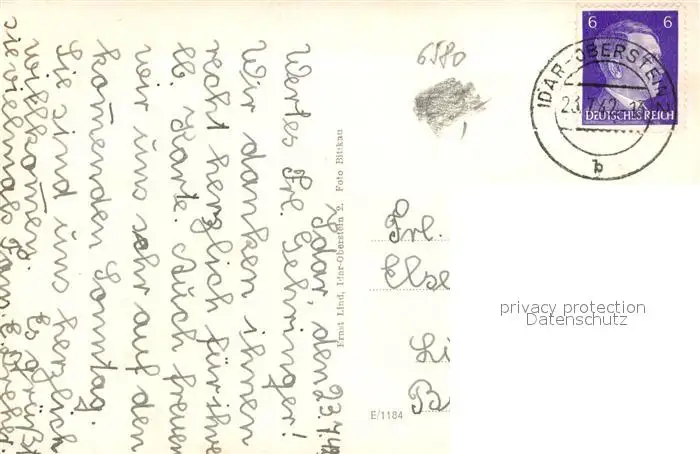 Idar, den 23.7.42
Wertes Frl. Gehringer!
Wir danken ihnen
recht herzlich für ihre
lb. Karte. Auch freuen
wir uns sehr auf den
kom̄enden Sonntag.
Sie sind uns herzlich
willkom̄en. Es grüßt
sie vielmals Fam.
Ernst Lind, Idar-Oberstein 2. Foto Bittkau
6580
6 6
DEUTSCHES REICH
IDAR-OBERSTEIN 2
23.7.42
b
Frl.
Else
Li
B
E/1184
privacy protection
Datenschutz